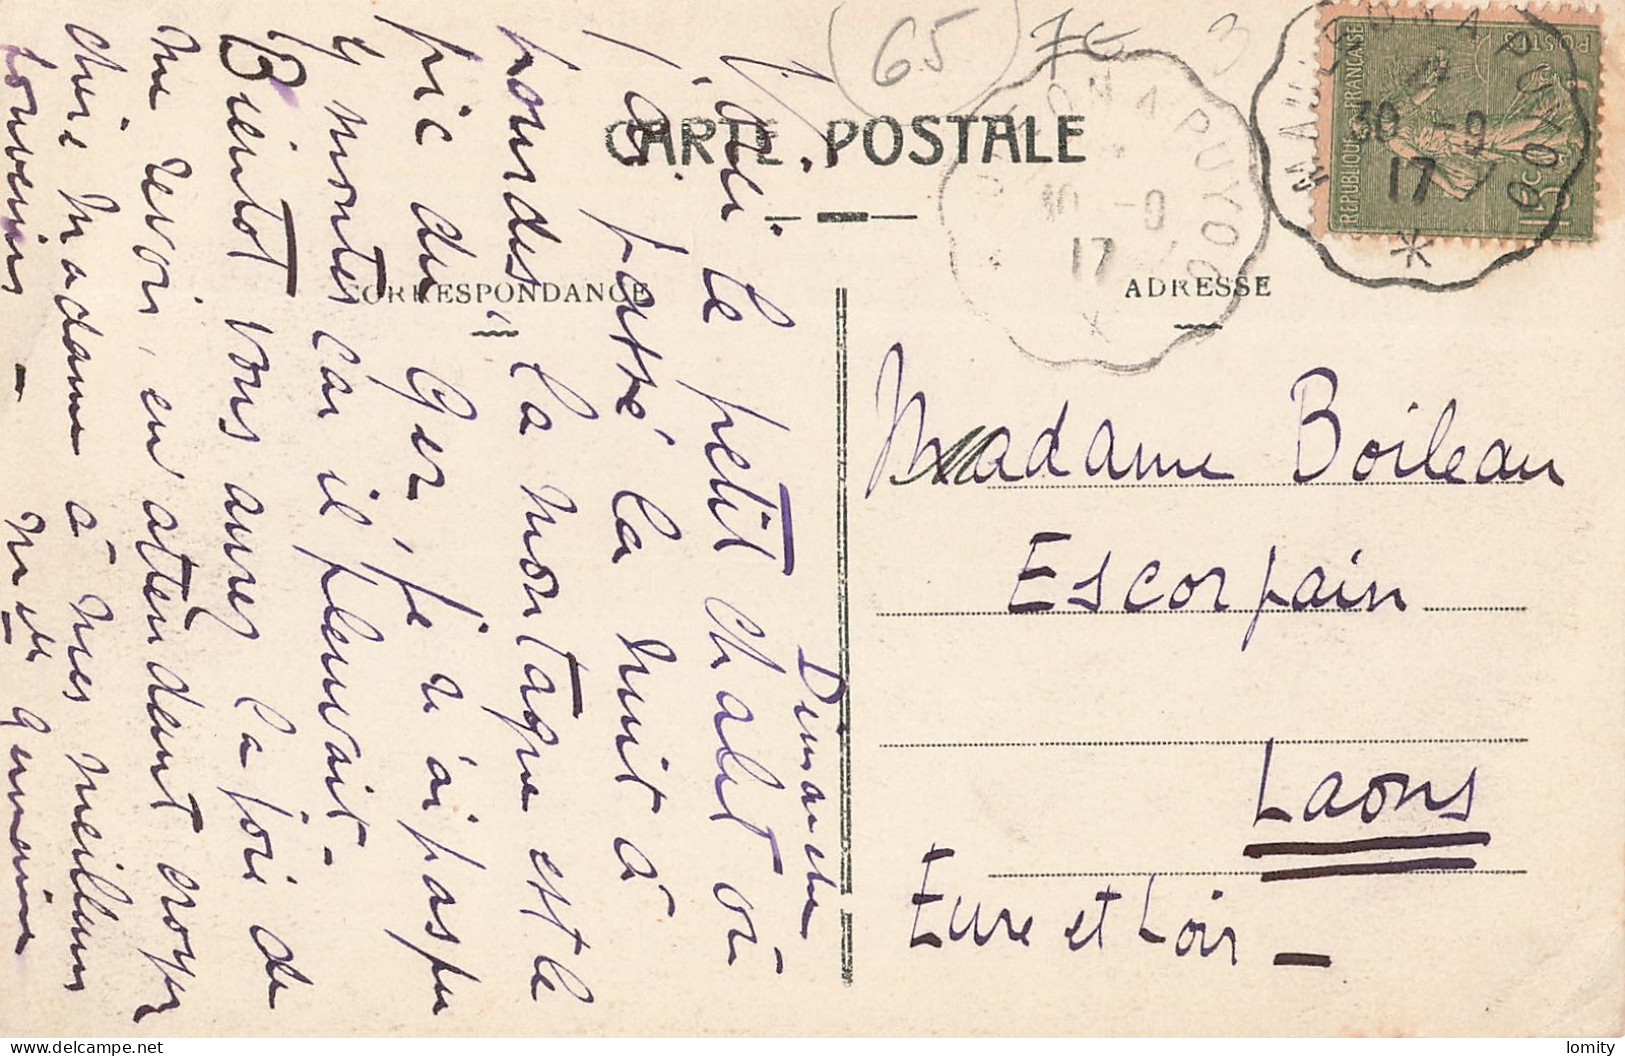 65 7€ 3
CARTE POSTALE
CORRESPONDANCE
ADRESSE
RÉPUBLIQUE FRANÇAISE
POSTES
15c
MAULÉON A PUYOO
30 -9
17
MAULÉON A PUYOO
30 -9
17
Dimanche
Voici le petit chalet où
j'ai passé la nuit à
Lourdes, la montagne est le
pic du Ger, je n'ai pas pu
y monter car il pleuvait -
Bientot vous aurez la joie de
me revoir, en attendant croyez
chère Madame à mes meilleurs
souvenirs - Germaine
Madame Boileau
Escorpain
Laons
Eure et Loir -
lomity